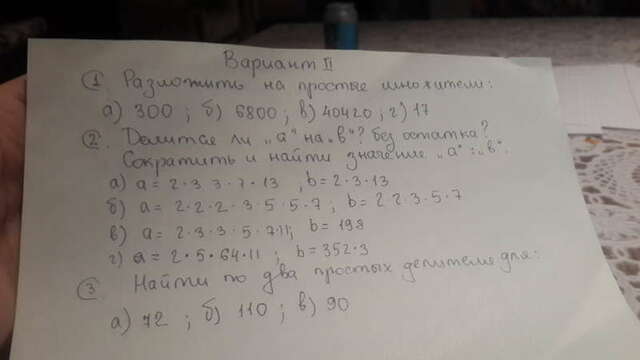 Вариант II
① Разложить на простые множители:
а) 300 ; б) 6800 ; в) 40420 ; г) 17
② Делится ли „а" на „в"? без остатка?
Сократить и найти значение „а" : „в".
а) a = 2·3·3·7·13 , b = 2·3·13
б) a = 2·2·2·3·5·5·7 ; b = 2·2·3·5·7
в) a = 2·3·3·5·7·11; b = 198
г) a = 2·5·64·11 ; b = 352·3
③ Найти по два простых делителя для:
а) 72 ; б) 110 ; в) 90